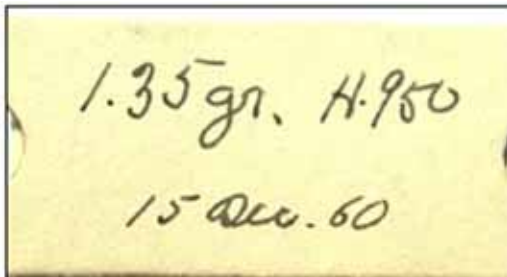 1.35 gr. H.950
15 Dec. 60